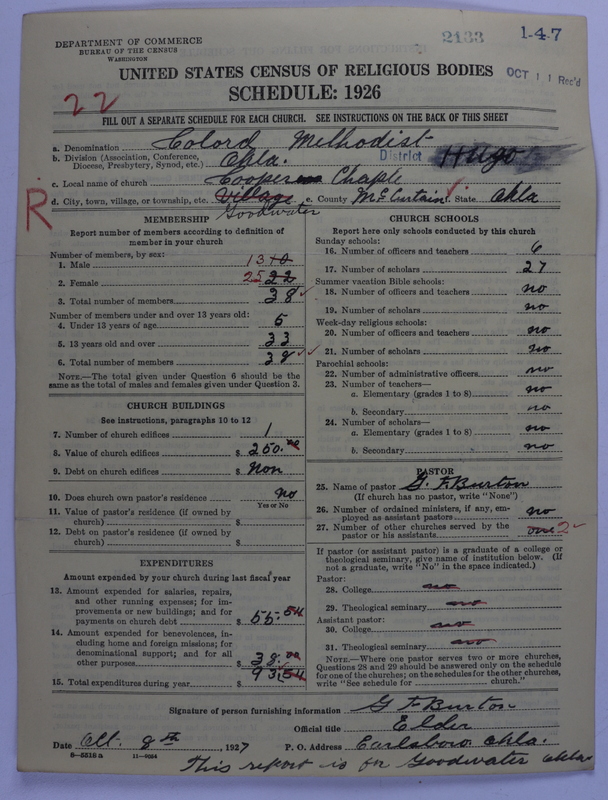 DEPARTMENT OF COMMERCE
BUREAU OF THE CENSUS
WASHINGTON
2133
1-4-7
OCT 11 Rec'd
UNITED STATES CENSUS OF RELIGIOUS BODIES
SCHEDULE: 1926
22
FILL OUT A SEPARATE SCHEDULE FOR EACH CHURCH. SEE INSTRUCTIONS ON THE BACK OF THIS SHEET
a. Denomination Colord Methodist
b. Division (Association, Conference, Diocese, Presbytery, Synod, etc.) Okla. District Hugo
c. Local name of church Cooper Chaple
d. City, town, village, or township, etc. Village e. County McCurtain State Okla
Goodwater
R
MEMBERSHIP
Report number of members according to definition of member in your church
Number of members, by sex:
1. Male 13 10
2. Female 25 22
3. Total number of members 38
Number of members under and over 13 years old:
4. Under 13 years of age 5
5. 13 years old and over 33
6. Total number of members 38
NOTE.—The total given under Question 6 should be the same as the total of males and females given under Question 3.
CHURCH BUILDINGS
See instructions, paragraphs 10 to 12
7. Number of church edifices 1
8. Value of church edifices $ 250.00
9. Debt on church edifices $ Non
10. Does church own pastor's residence no
Yes or No
11. Value of pastor's residence (if owned by church) $
12. Debt on pastor's residence (if owned by church) $
EXPENDITURES
Amount expended by your church during last fiscal year
13. Amount expended for salaries, repairs, and other running expenses; for improvements or new buildings; and for payments on church debt $ 55.54
14. Amount expended for benevolences, including home and foreign missions; for denominational support; and for all other purposes $ 38.00
15. Total expenditures during year $ 93.54
CHURCH SCHOOLS
Report here only schools conducted by this church
Sunday schools:
16. Number of officers and teachers 6
17. Number of scholars 27
Summer vacation Bible schools:
18. Number of officers and teachers no
19. Number of scholars no
Week-day religious schools:
20. Number of officers and teachers no
21. Number of scholars no
Parochial schools:
22. Number of administrative officers no
23. Number of teachers—
a. Elementary (grades 1 to 8) no
b. Secondary no
24. Number of scholars—
a. Elementary (grades 1 to 8) no
b. Secondary no
PASTOR
25. Name of pastor G. F. Burton
(If church has no pastor, write "None")
26. Number of ordained ministers, if any, employed as assistant pastors no
27. Number of other churches served by the pastor or his assistants one 2
If pastor (or assistant pastor) is a graduate of a college or theological seminary, give name of institution below. (If not a graduate, write "No" in the space indicated.)
Pastor:
28. College no
29. Theological seminary no
Assistant pastor:
30. College no
31. Theological seminary no
NOTE.—Where one pastor serves two or more churches, Questions 28 and 29 should be answered only on the schedule for one of the churches; on the schedules for the other churches, write "See schedule for church."
Signature of person furnishing information G F Burton
Official title Elder
Date Oct. 8th, 1927 P. O. Address Earlsboro Okla.
8-5518a 11-9034
This report is for Goodwater Okla.